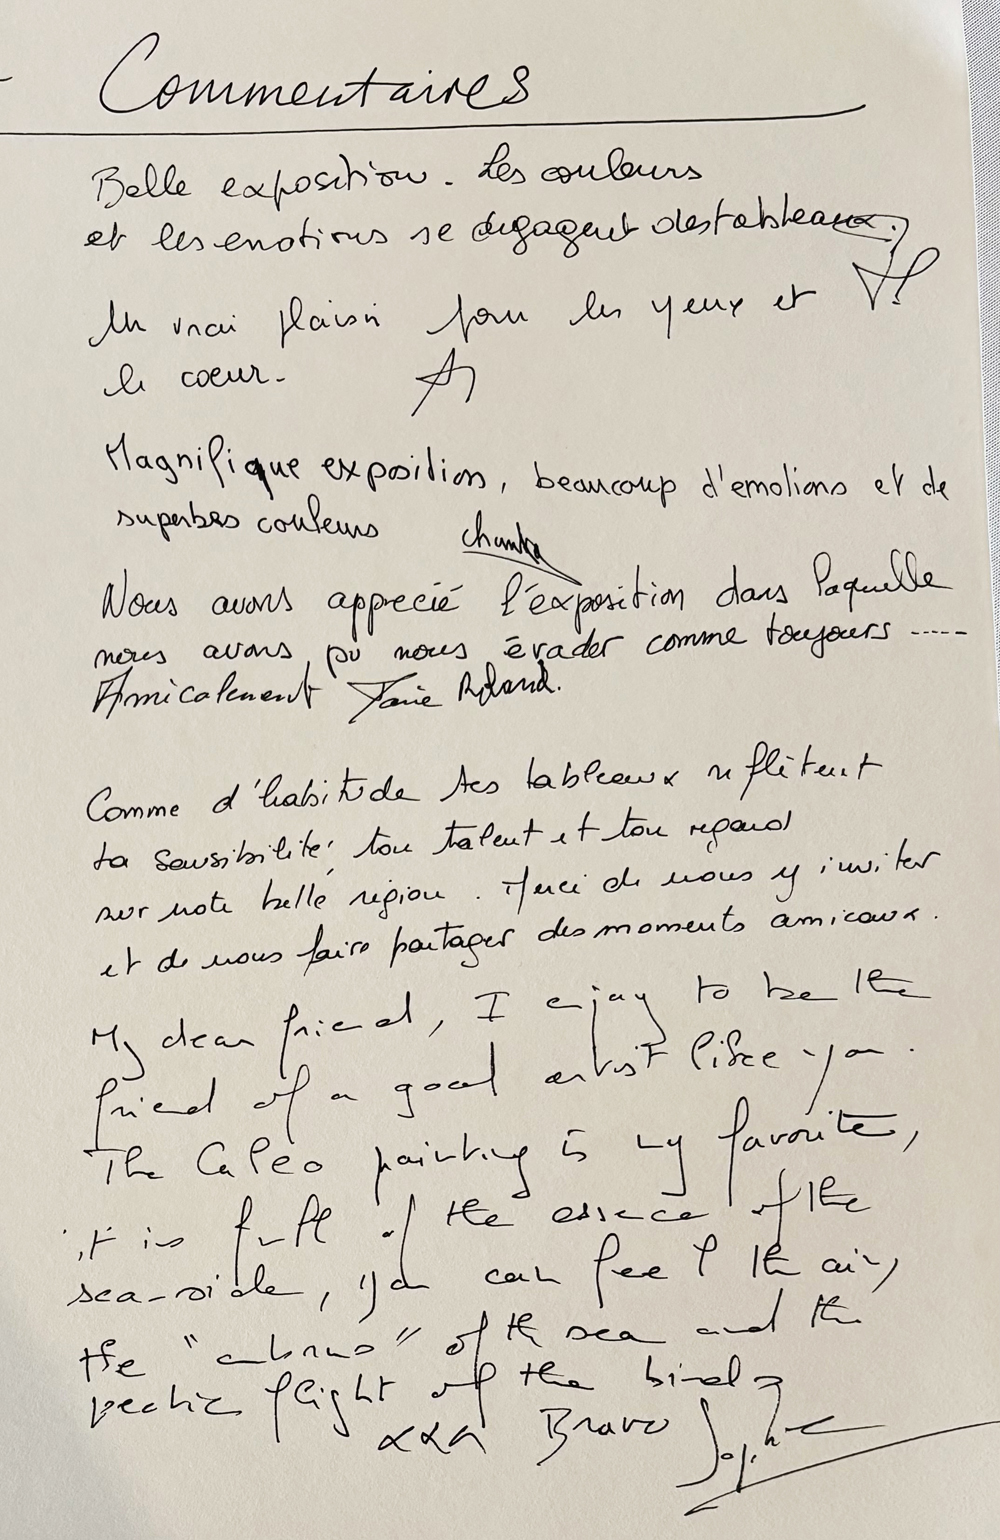 Commentaires
Belle exposition. Les couleurs
et les emotions se dégagent des tableaux.
Un vrai plaisir pour les yeux et
le coeur.
Magnifique exposition, beaucoup d'emotions et de
superbes couleurs
Nous avons apprecié l'exposition dans laquelle
nous avons pu nous évader comme toujours .....
Amicalement Roland.
Comme d'habitude tes tableaux reflètent
ta sensibilité, ton talent et ton regard
sur notre belle région. Merci de nous y inviter
et de nous faire partager des moments amicaux.
My dear friend, I enjoy to be the
friend of a good artist like you.
The Caleo painting is my favorite,
it is full of the essence of the
sea-side, you can feel the air,
the " " of the sea and the
poetic flight of the birds
xxx Bravo Sophie